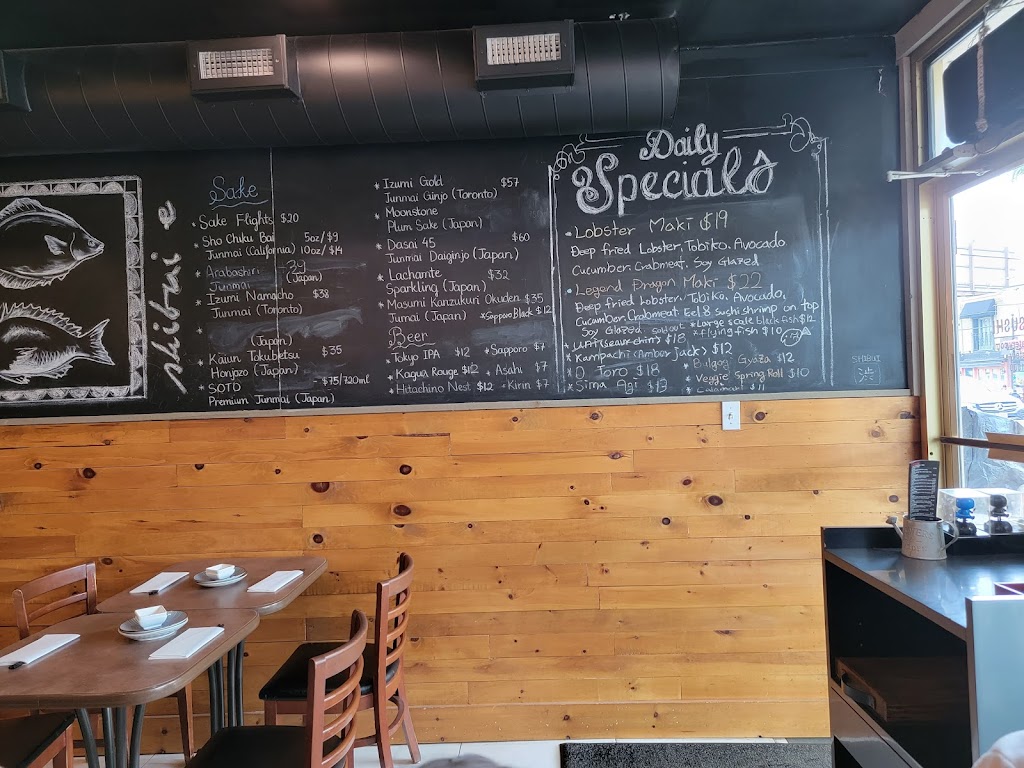 shibui e
Sake
* Sake Flights $20
* Sho Chiku Bai 5oz/$9
Junmai (California) 10oz/$14
* Arabashiri 29
Junmai (Japan)
* Izumi Namacho $38
Junmai (Toronto)
*
(Japan)
* Kaiun Tokubetsu $35
Honjozo (Japan)
* SOTO - $75/720ml
Premium Junmai (Japan)
* Izumi Gold $57
Junmai Ginjo (Toronto)
* Moonstone
Plum Sake (Japan)
* Dasai 45 $60
Junmai Daiginjo (Japan)
* Lachamte $32
Sparkling (Japan)
* Masumi Kanzukuri Okuden $35
Jumai (Japan) *Sapporo Black $12
Beer
* Tokyo IPA $12 *Sapporo $7
* Kagua Rouge $12 * Asahi $7
* Hitachino Nest $12 * Kirin $7
Daily
Specials
* Lobster Maki $19
Deep fried Lobster, Tobiko, Avocado
Cucumber. Crabmeat. Soy Glazed
* Legend Dragon Maki $22
Deep fried Lobster. Tobiko. Avocado,
Cucumber. Crabmeat Eel & sushi shrimp on top
Soy Glazed
*Large scale blackfish $12
* Uni (sea urchin) $18 *Flying fish $10
* Kampachi (Amber Jack) $12
* O Toro $18 * Bulgogi Gyoza $12
* Sima Agi $13 * Veggie Spring Roll $10
* Calamari $11
SHIBUI
SUSHI